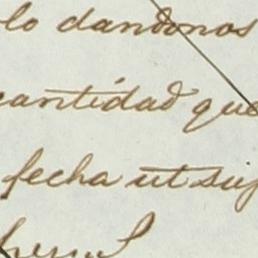 lo dandonos
cantidad que
fecha ut sup